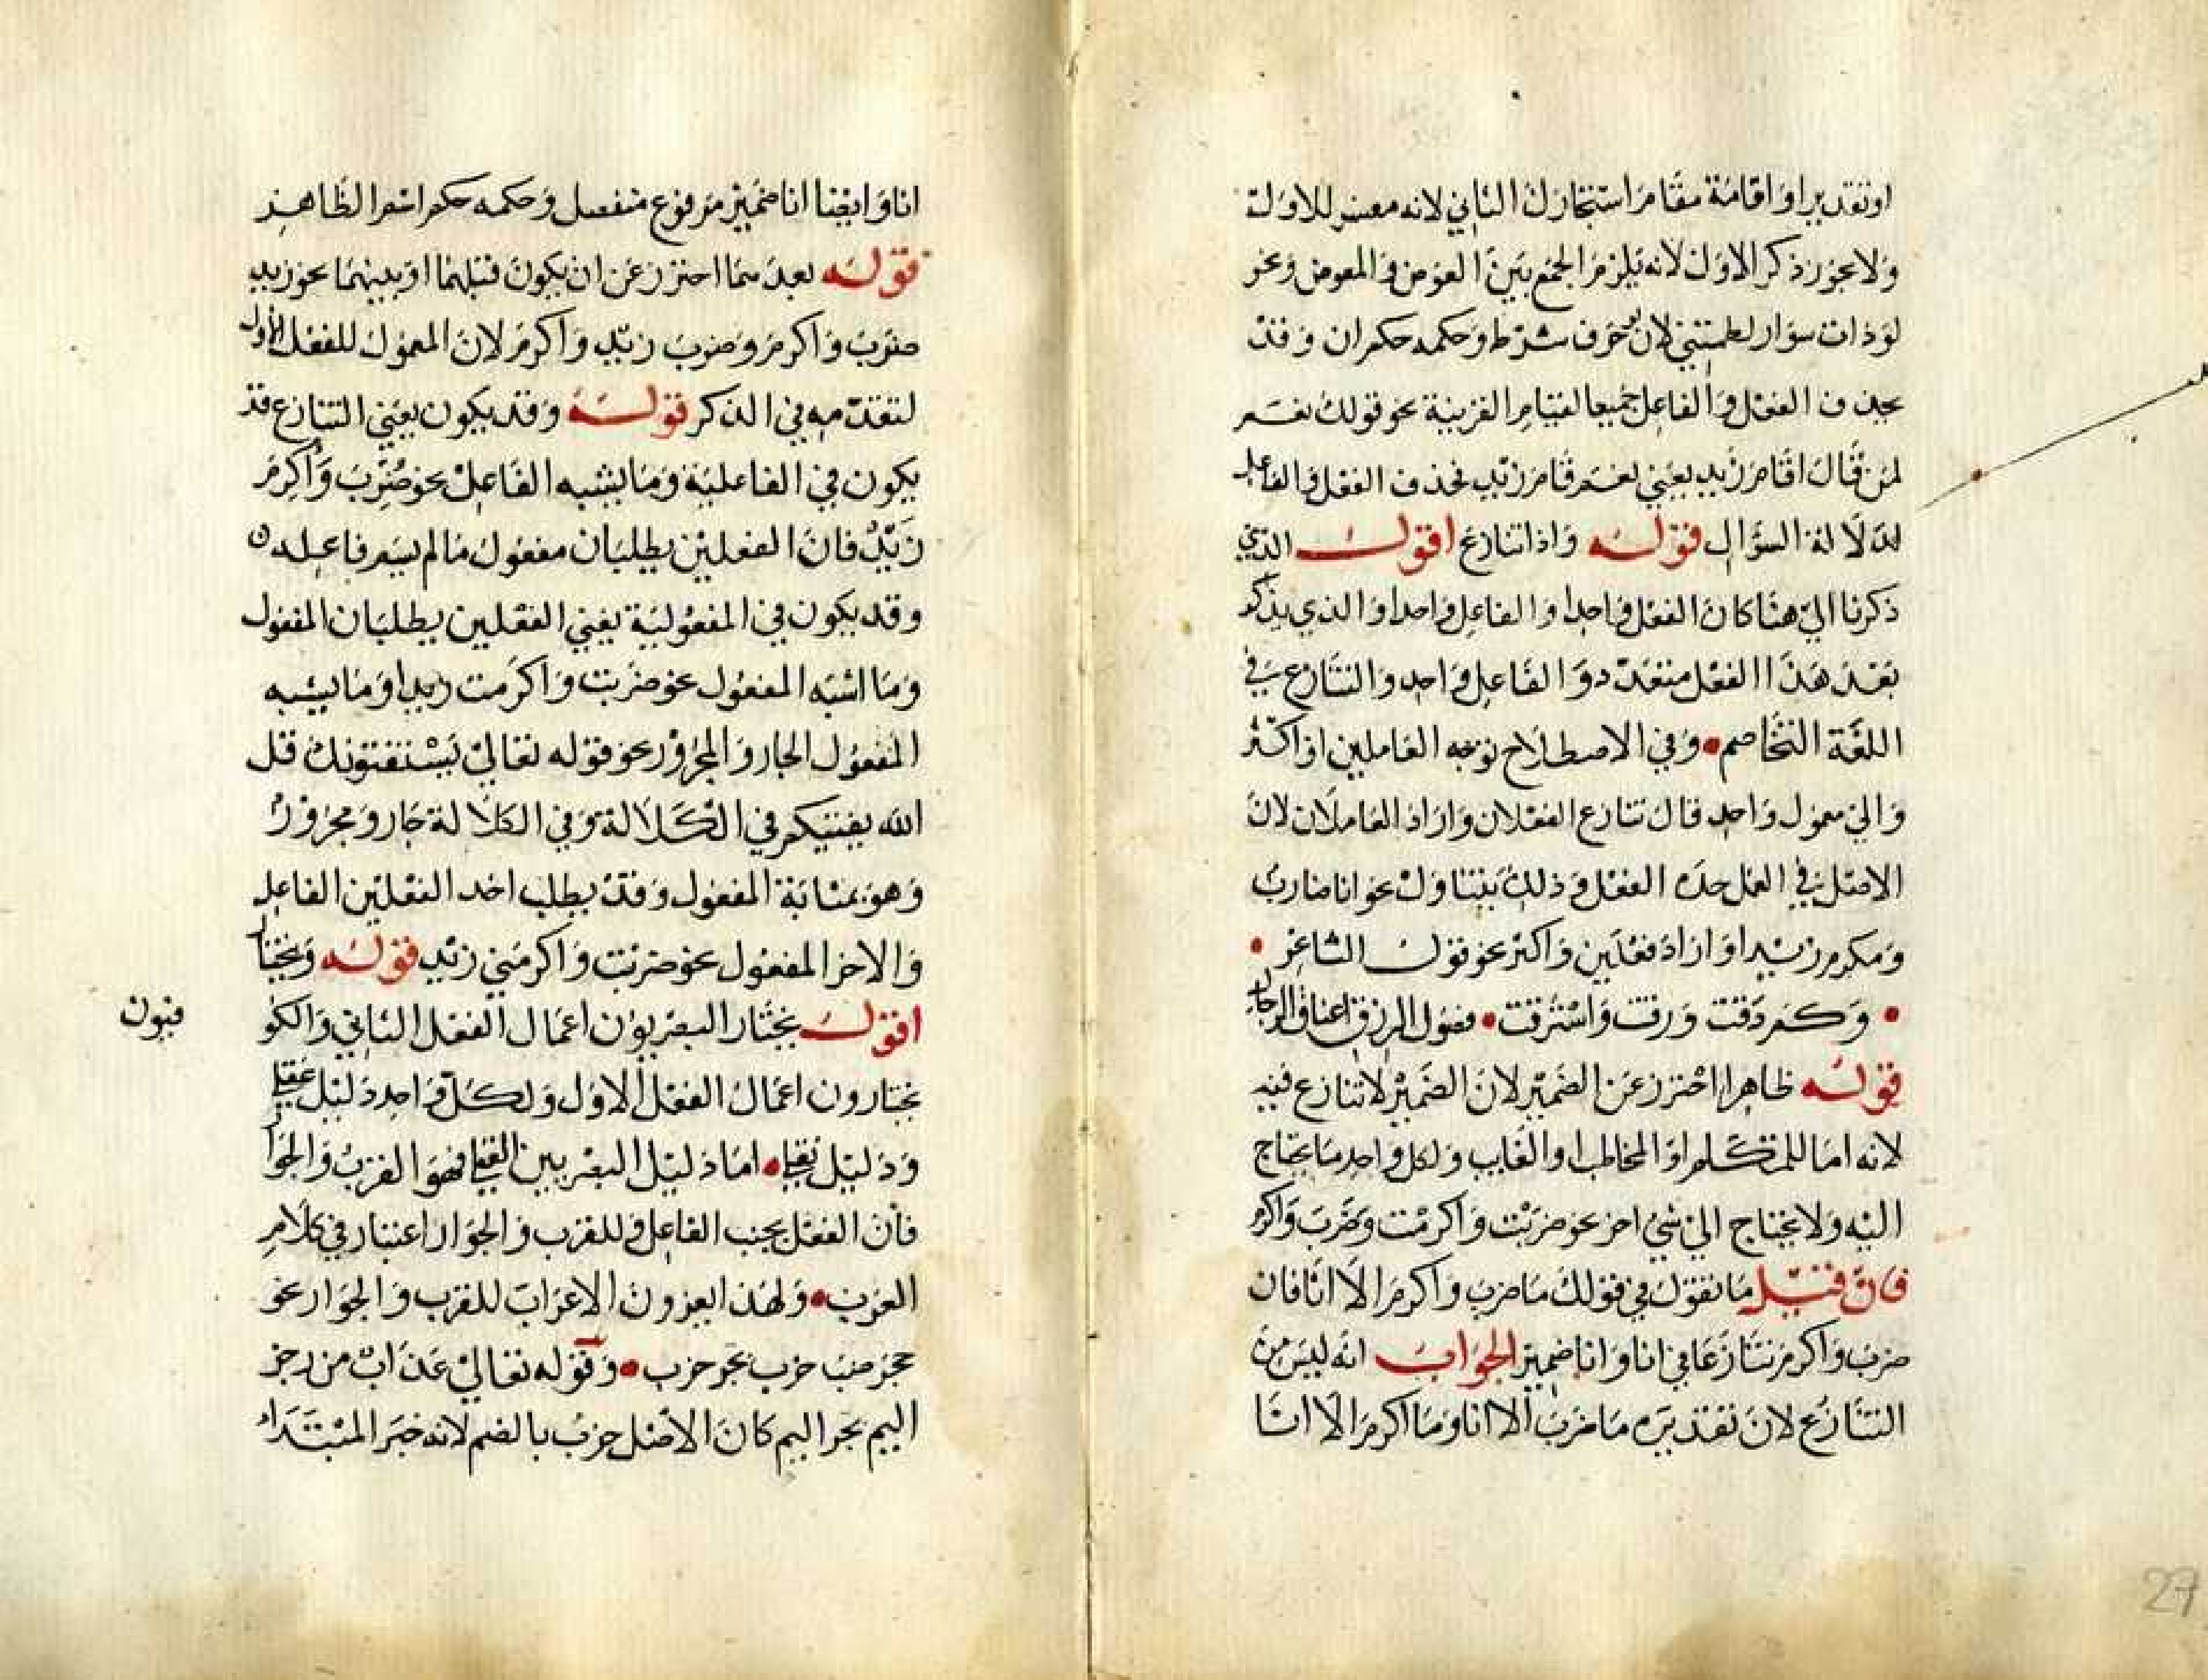 او تقديرا واقامة مقام استجارك الثاني لانه مفسر للاولة
ولا يجوز ذكر الاول لانه يلزم الجمع بين العوض والمعوض ونحو
لو ذات سوار لطمتني لان لو حرف شرط وحكمه حكم ان وقد
يحذف الفعل والفاعل جميعا لقيام القرينة نحو قولك نعم
لمن قال اقام زيد يعني نعم قام زيد فحذف الفعل والفاعل
لدلالة السؤال قوله واذا تنازع اقول الذي
ذكرنا الي هنا كان الفعل واحدا والفاعل واحدا والذي يذكر
بعد هذا الفعل متعدد والفاعل واحد والتنازع في
اللغة التخاصم • وفي الاصطلاح توجه العاملين او اكثر
والي معمول واحد قال تنازع الفعلان واراد العاملان لان
الاصل في العمل حده الفعل وذلك يتناول نحو انا ضارب
ومكرم زيدا واراد فعلين واكثر نحو قول الشاعر •
• وكم دقت ورقت واسترقت • فضول الرزق اعناق الرجال
قوله ظاهرا احترز عن الضمير لان الضمير لا تنازع فيه
لانه اما للمتكلم او المخاطب او الغايب ولكل واحد ما يحتاج
اليه ولا يحتاج الي شئ اخر نحو ضربت واكرمت وضرب واكرم
فان قيل ما تقول في قولك ما ضرب واكرم الا انا فان
ضرب واكرم تنازعا في انا وانا ضمير الجواب انه ليس من
التنازع لان تقديره ما ضرب الا انا وما اكرم الا انا
انا وايضا انا ضمير مرفوع منفصل وحكمه حكم اسم الظاهر
قوله بعدهما احترز عن ان يكون قبلهما او بينهما نحو زيد
ضرب واكرم وضرب زيد واكرم لان المعمول للفعل الاول
لتقدمه في الذكر قوله وقد يكون يعني التنازع قد
يكون في الفاعلية وما يشبه الفاعل نحو ضرب واكرم
زيد فان الفعلين يطلبان مفعول ما لم يسم فاعله ن
وقد يكون في المفعولية يعني الفعلين يطلبان المفعول
وما اشبه المفعول نحو ضربت واكرمت زيدا وما يشبه
المفعول الجار والمجرور نحو قوله تعالي يستفتونك قل
الله يفتيكم في الكلالة وفي الكلالة جار ومجرور
وهو بمثابة المفعول وقد يطلب احد الفعلين الفاعل
والاخر المفعول نحو ضربت واكرمني زيد قوله ويختار
اقول يختار البصريون اعمال الفعل الثاني والكو
فيون
يختارون اعمال الفعل الاول ولكل واحد دليل عقلي
ودليل نقلي • اما دليل البصريين العقلي فهو القرب والجوار
فان الفعل بجنب الفاعل وللقرب والجوار اعتبار في كلام
العرب • ولهذا يعزون الاعراب للقرب والجوار نحو
حجر ضب خرب بجر خرب • وقوله تعالي عذاب من رجز
اليم بجر اليم كان الاصل خرب بالضم لانه خبر المبتداء
27